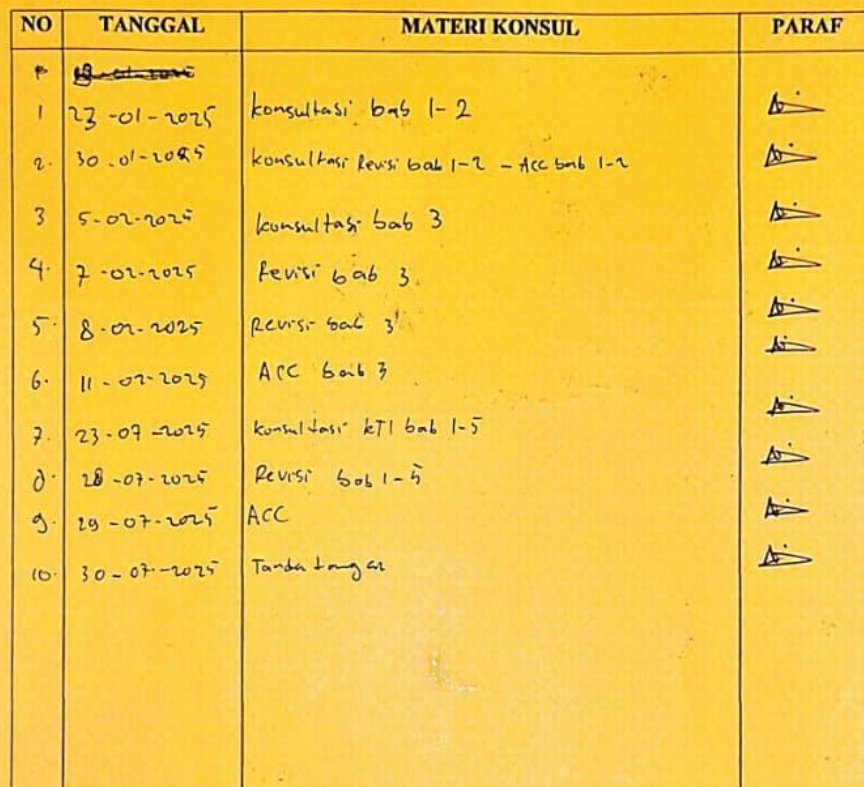 NO TANGGAL MATERI KONSUL PARAF
1 23-01-2025 konsultasi bab 1-2
2. 30-01-2025 konsultasi Revisi bab 1-2 - Acc bab 1-2
3 5-02-2025 konsultasi bab 3
4. 7-02-2025 Revisi bab 3
5. 8-02-2025 Revisi bab 3
6. 11-02-2025 ACC bab 3
7. 23-07-2025 konsultasi KTI bab 1-5
8. 28-07-2025 Revisi bab 1-5
9. 29-07-2025 ACC
10. 30-07-2025 Tanda tangan